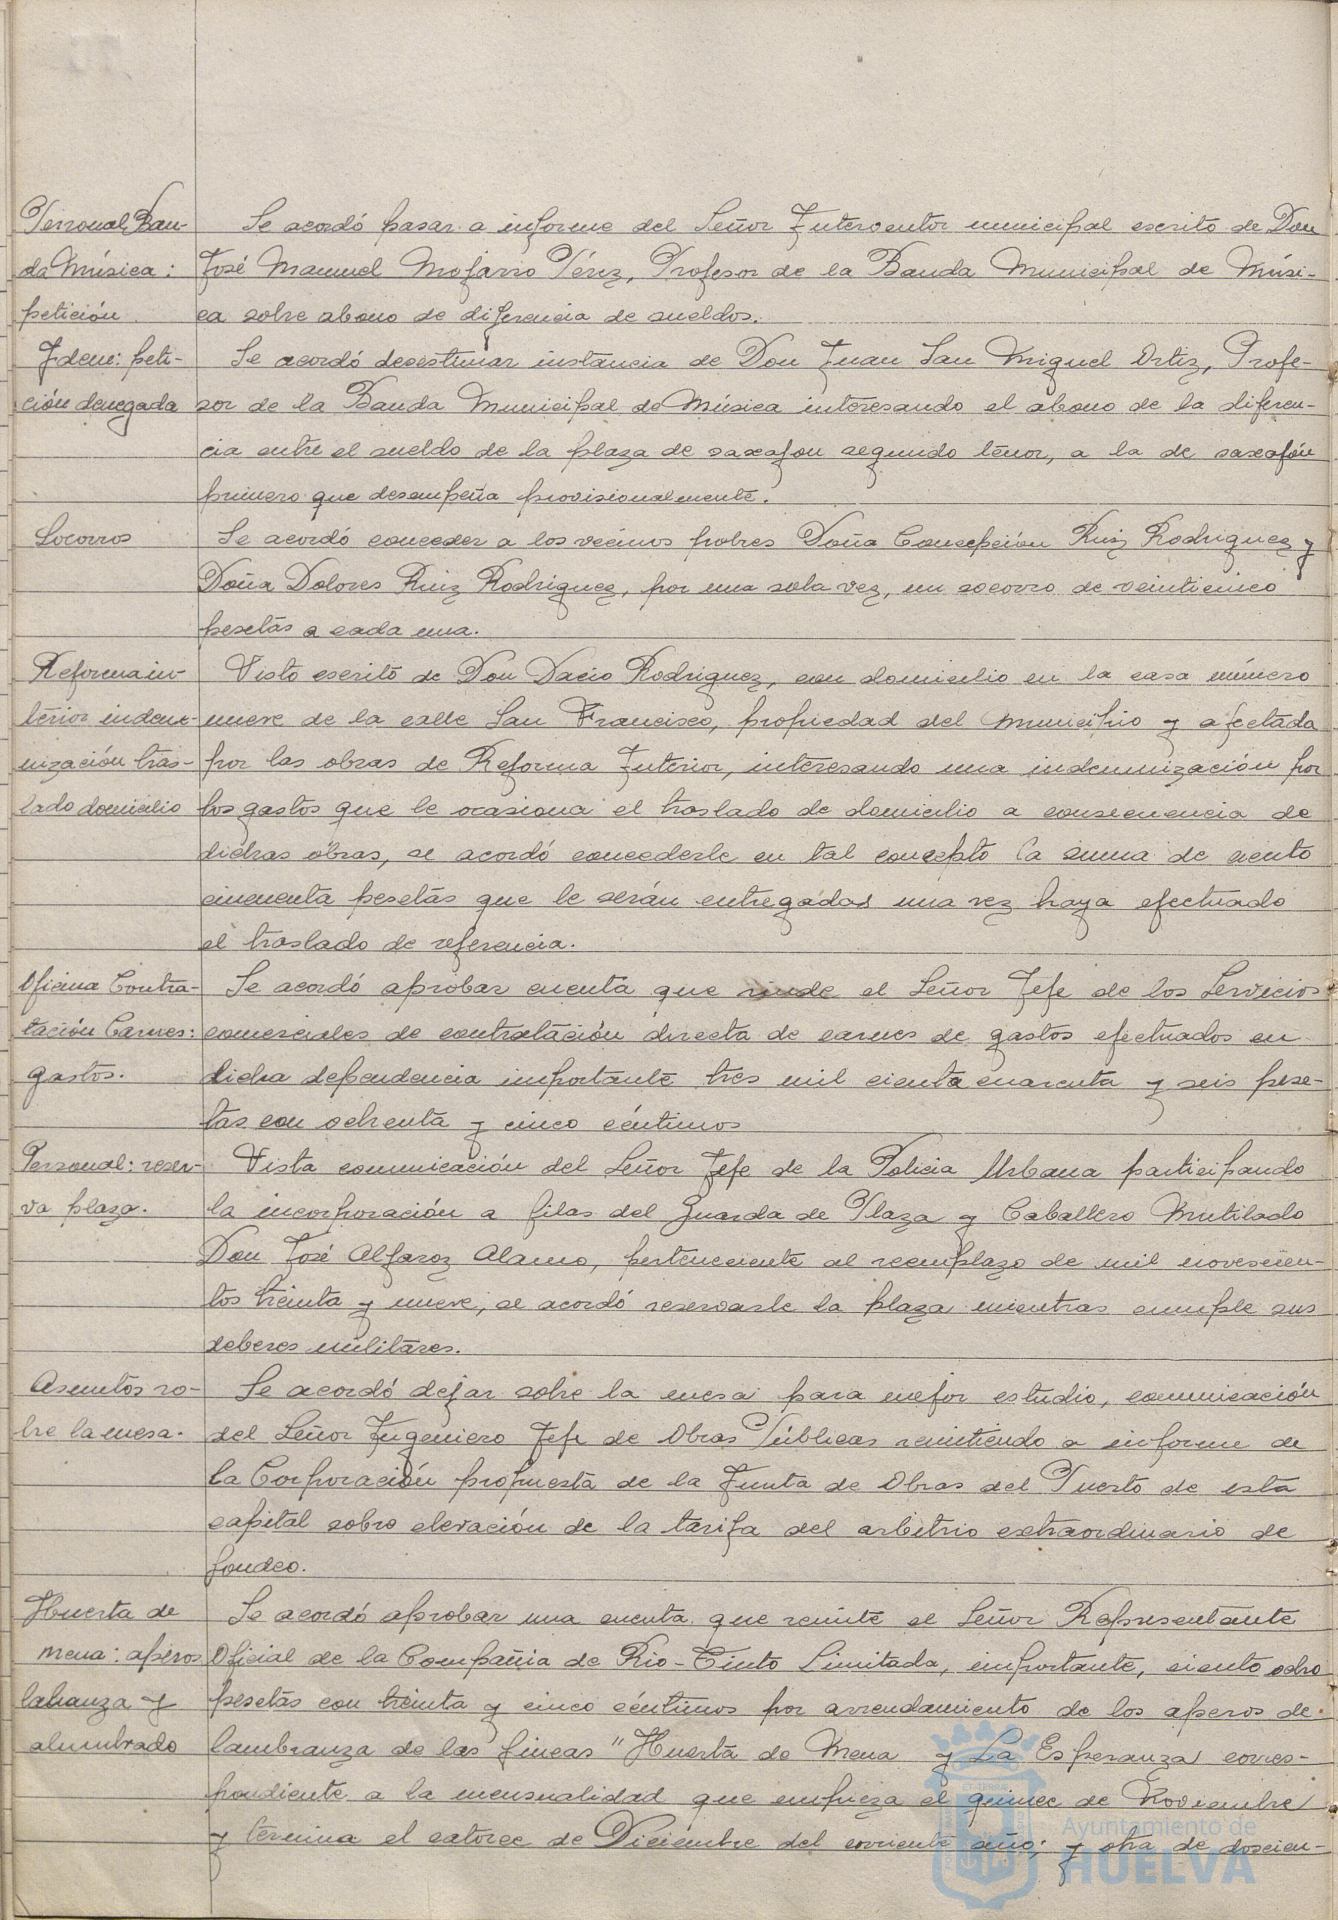 Personal Ban-
da Música:
petición.
Se acordó pasar a informe del Señor Interventor municipal escrito de Don
José Manuel Mojarro Pérez, Profesor de la Banda Municipal de Músi-
ca sobre abono de diferencia de sueldos.
Idem: peti-
ción denegada
Se acordó desestimar instancia de Don Juan San Miguel Ortiz, Profe-
sor de la Banda Municipal de Música interesando el abono de la diferen-
cia entre el sueldo de la plaza de saxafon segundo tenor, a la de saxofón
primero que desempeña provisionalmente.
Socorros
Se acordó conceder a los vecinos pobres Doña Concepción Ruiz Rodriguez y
Doña Dolores Ruiz Rodriguez, por una sola vez, un socorro de veinticinco
pesetas a cada una.
Reforma in-
terior indem-
nización tras-
lado domicilio
Visto escrito de Don Dacio Rodriguez, con domicilio en la casa número
nueve de la calle San Francisco, propiedad del Municipio y afectada
por las obras de Reforma Interior, interesando una indemnización por
los gastos que le ocasiona el traslado de domicilio a consecuencia de
dichas obras, se acordó concederle en tal concepto la suma de ciento
cincuenta pesetas que le serán entregadas una vez haya efectuado
el traslado de referencia.
Oficina Contra-
tación Carnes:
gastos.
Se acordó aprobar cuenta que rinde el Señor Jefe de los Servicios
comerciales de contratación directa de carnes de gastos efectuados en
dicha dependencia importante tres mil cienta cuarenta y seis pese-
tas con ochenta y cinco céntimos
Personal: reser-
va plaza.
Vista comunicación del Señor Jefe de la Policia Urbana participando
la incorporación a filas del Guarda de Plaza y Caballero Mutilado
Don José Alfaroz Alamo, perteneciente al reemplazo de mil novecien-
tos treinta y nueve, se acordó reservarle la plaza mientras cumple sus
deberes militares.
Asuntos so-
bre la mesa.
Se acordó dejar sobre la mesa para mejor estudio, comunicación
del Señor Ingeniero Jefe de Obras Públicas remitiendo a informe de
la Corporación propuesta de la Junta de Obras del Puerto de esta
capital sobre elevación de la tarifa del arbitrio extraordinario de
fondeo.
Huerta de
Mena: aperos
labranza y
alumbrado
Se acordó aprobar una cuenta que remite el Señor Representante
Oficial de la Compañia de Rio-Tinto Limitada, importante, ciento ocho
pesetas con treinta y cinco céntimos por arrendamiento de los aperos de
lambranza de las fincas "Huerta de Mena y La Esperanza corres-
pondiente a la mensualidad que empieza el quince de Noviembre
y termina el catorce de Diciembre del corriente año; y otra de doscien-
Ayuntamiento de
HUELVA